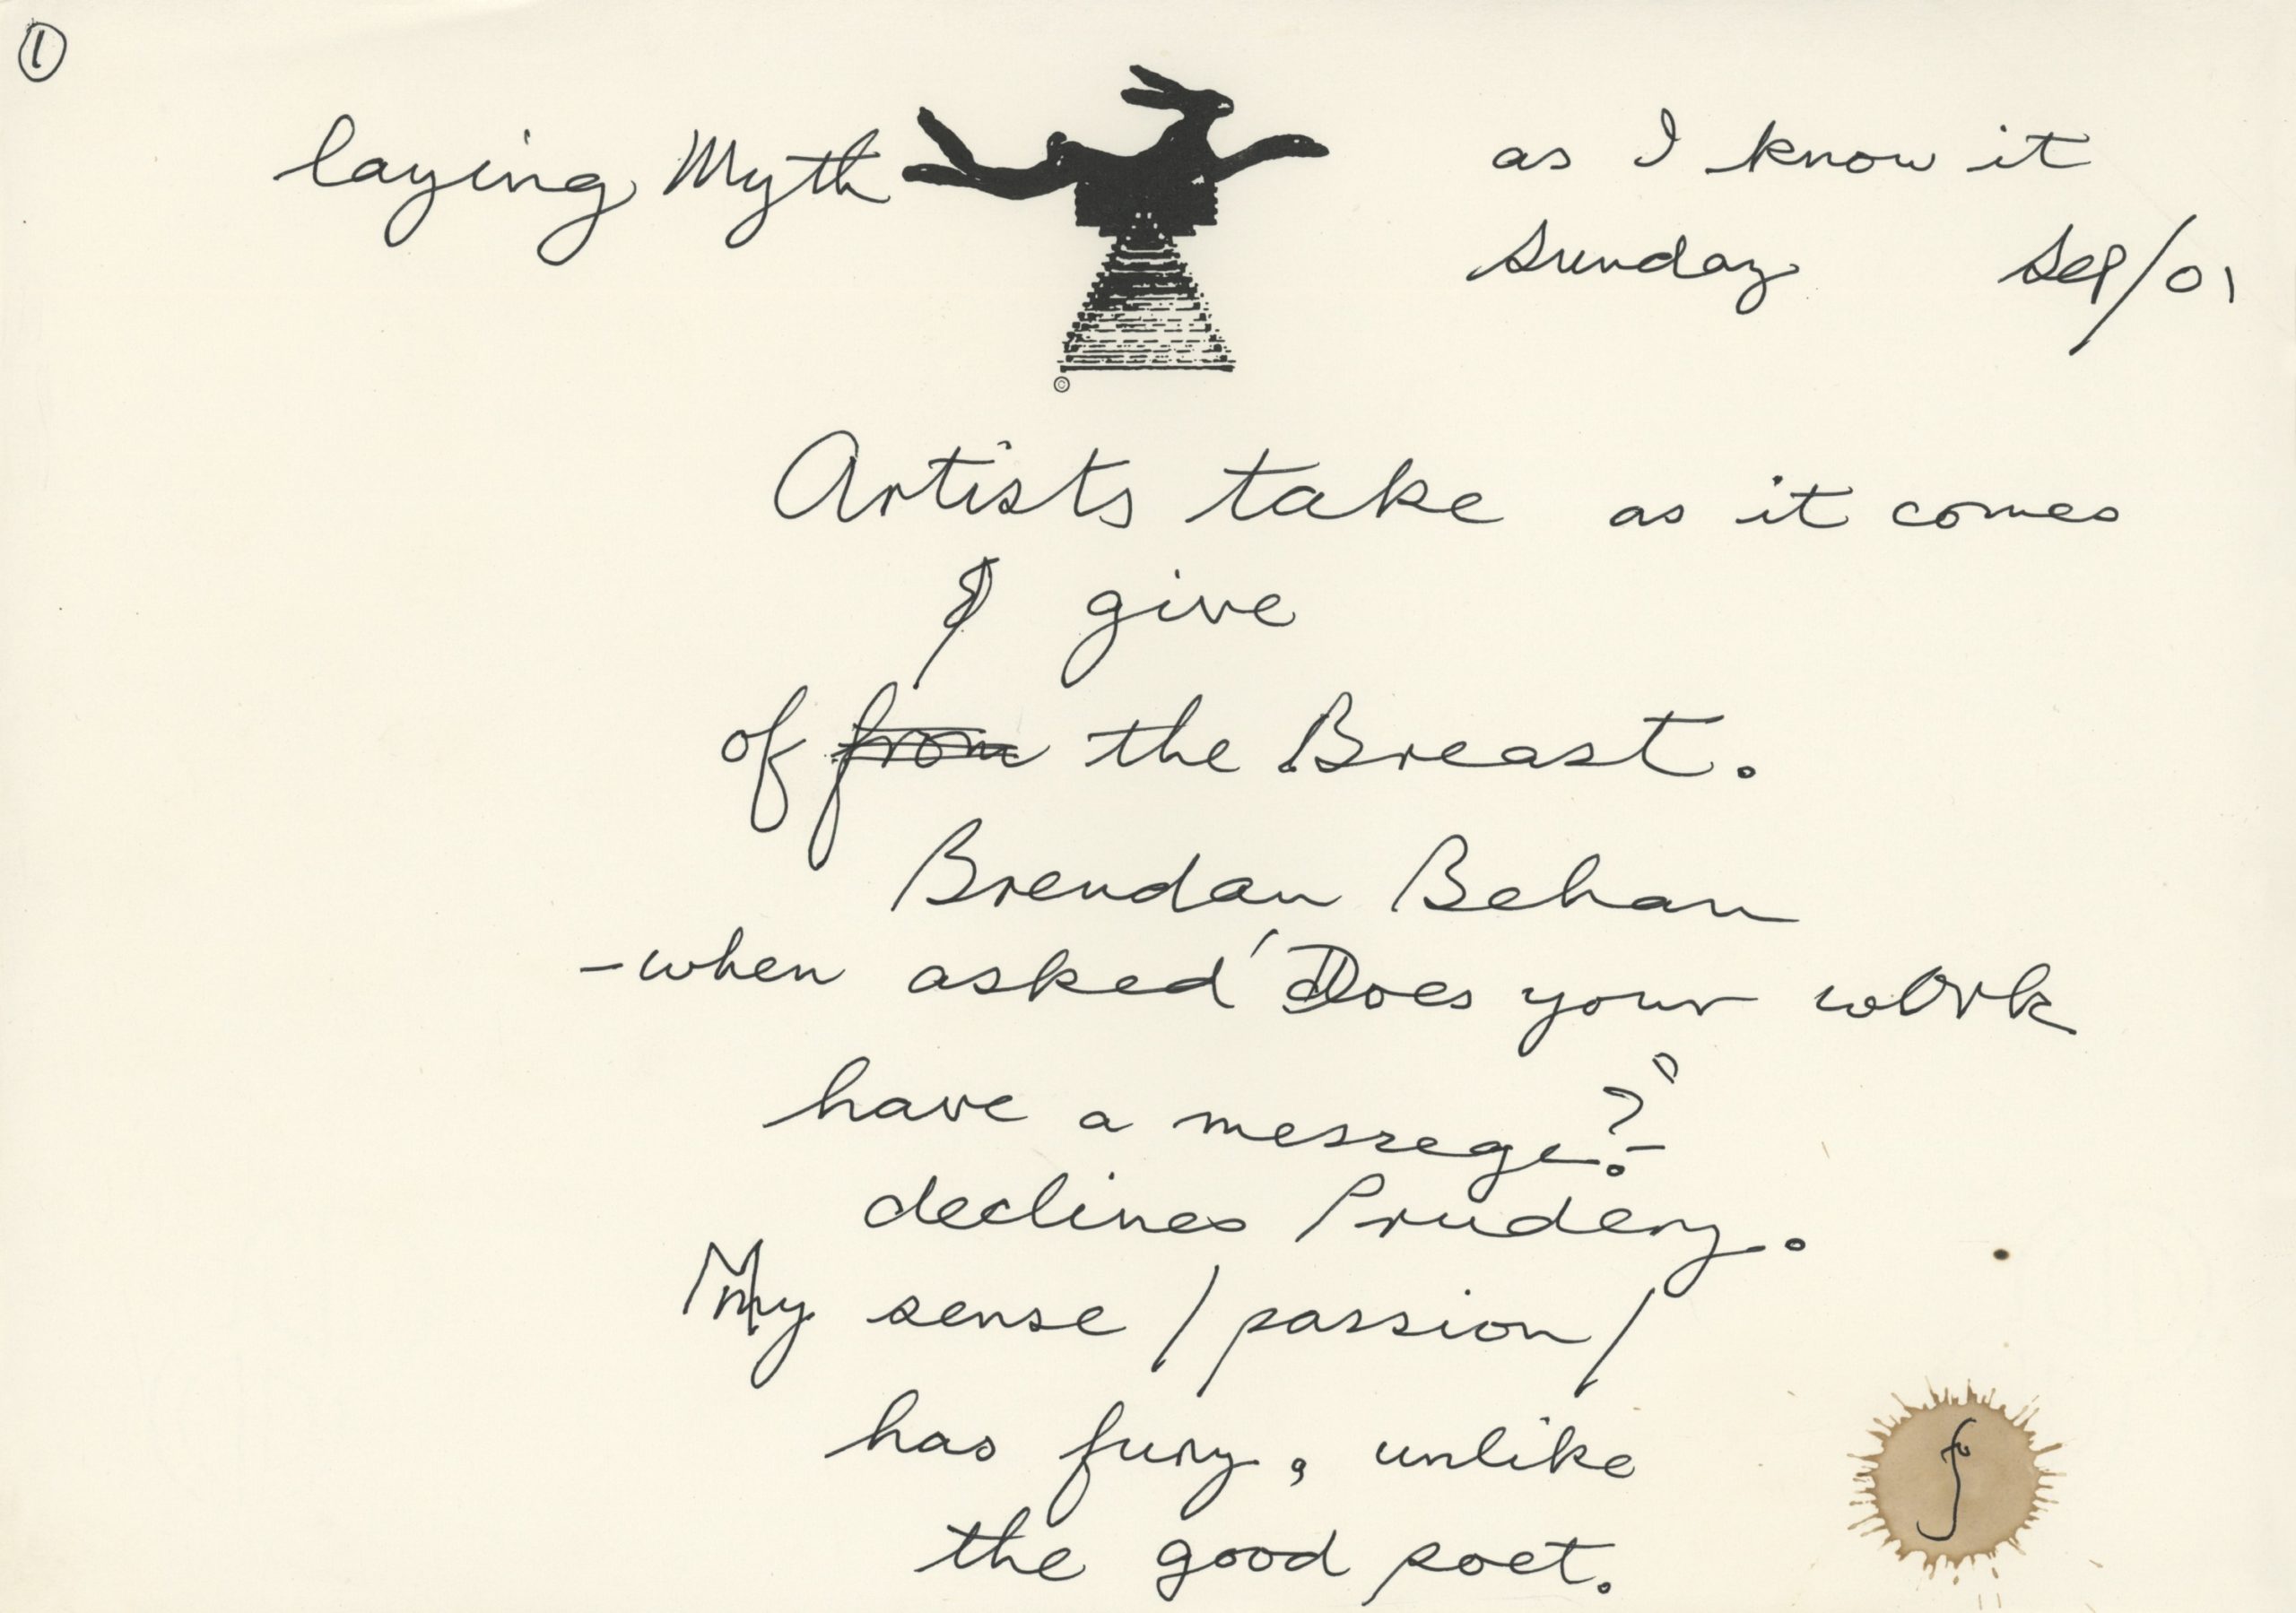 ①
laying Myth as I know it
Sunday Sep/01
©
Artists take as it comes
& give
of from the Breast.
Brendan Behan
-when asked 'Does your work
have a messege?'-
declines Prudery.
My sense / passion /
has fury, unlike
the good poet.